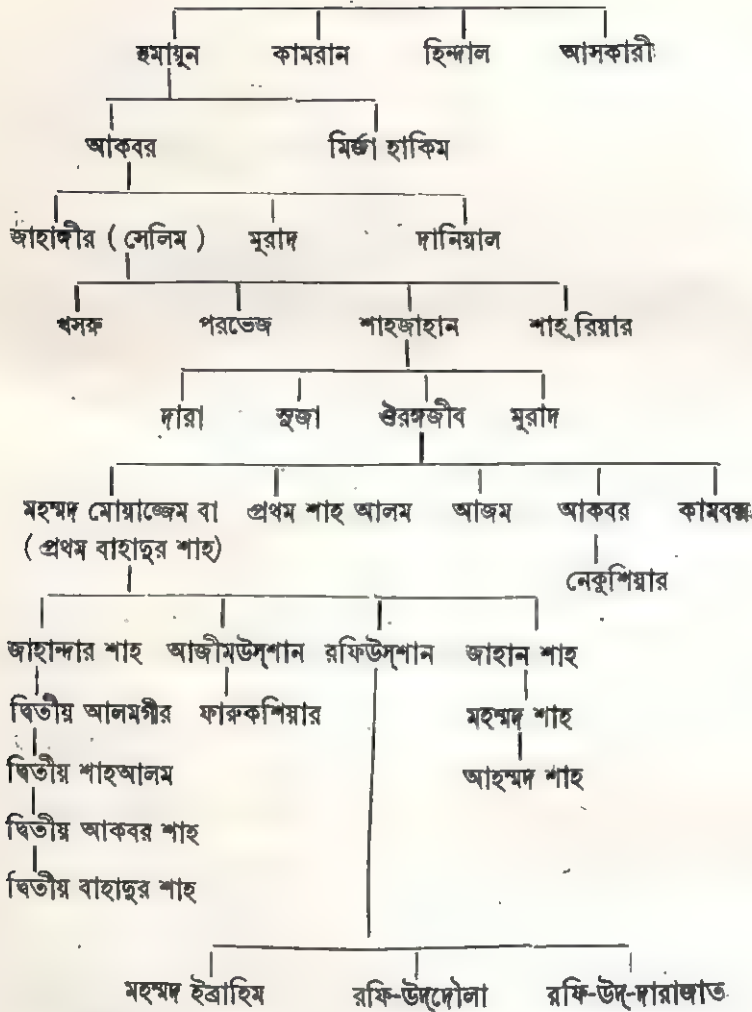 হুমায়ুন কামরান হিন্দাল আসকারী
আকবর মির্জা হাকিম
জাহাঙ্গীর ( সেলিম ) মুরাদ দানিয়াল
খসরু পরভেজ শাহজাহান শাহ্ রিয়ার
দারা সুজা ঔরঙ্গজীব মুরাদ
মহম্মদ মোয়াজ্জেম বা প্রথম শাহ আলম আজম আকবর কামবক্স
( প্রথম বাহাদুর শাহ)
নেকুশিয়ার
জাহান্দার শাহ আজীমউস্শান রফিউস্শান জাহান শাহ
দ্বিতীয় আলমগীর ফারুকশিয়ার মহম্মদ শাহ
দ্বিতীয় শাহআলম আহম্মদ শাহ
দ্বিতীয় আকবর শাহ
দ্বিতীয় বাহাদুর শাহ
মহম্মদ ইব্রাহিম রফি-উদ্দৌলা রফি-উদ্-দারাজাত